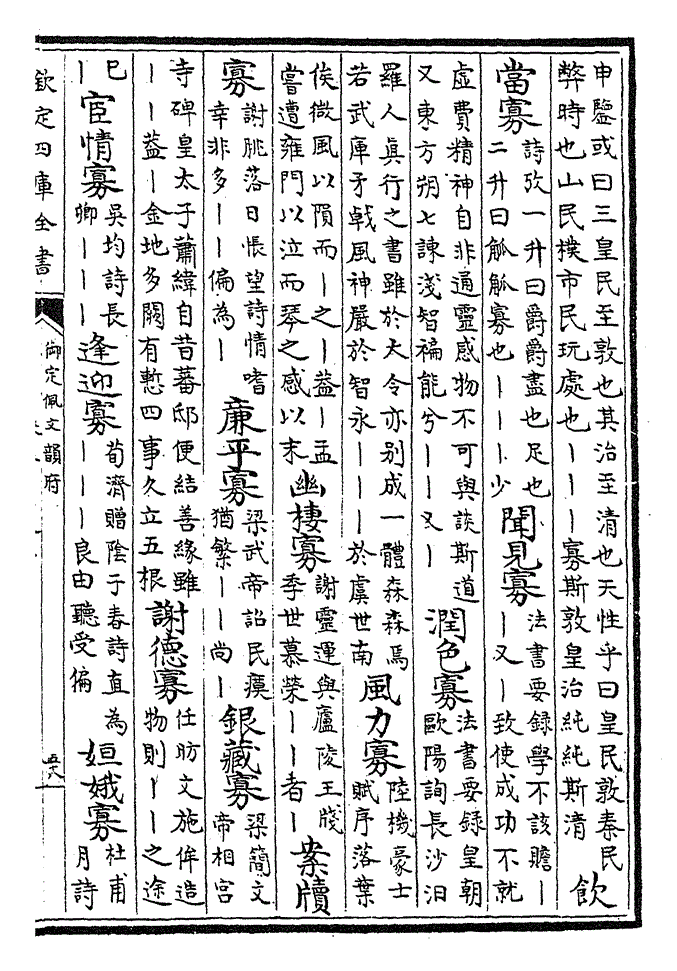 申鑒或曰三皇民至敦也其治至清也天性乎曰皇民敦秦民
弊時也山民樸市民玩處也｜｜｜寡斯敦皇治純純斯清
飲
當寡
詩攷一升曰爵爵盡也足也
二升曰觚觚寡也｜｜｜少
聞見寡
法書要錄學不該贍｜
｜又｜致使成功不就
虛費精神自非通靈感物不可與談斯道
又東方朔七諫淺智褊能兮｜｜又｜
潤色寡
法書要錄皇朝
歐陽詢長沙汨
羅人真行之書雖於大令亦别成一體森森焉
若武庫矛戟風神嚴於智永｜｜｜於虞世南
風力寡
陸機豪士
賦序落葉
俟微風以隕而｜之｜葢｜孟
嘗遭雍門以泣而琴之感以末
幽棲寡
謝靈運與廬陵王牋
季世慕榮｜｜者｜
案牘
寡
謝朓落日悵望詩情嗜
幸非多｜｜偏為｜
廉平寡
梁武帝詔民瘼
猶繁｜｜尚｜
銀藏寡
梁簡文
帝相宮
寺碑皇太子蕭緯自昔蕃邸便結善緣雖
｜｜葢｜金地多闕有慙四事久立五根
謝德寡
任昉文施侔造
物則｜｜之途
巳
｜
宦情寡
吳均詩長
卿｜｜｜
逢迎寡
荀濟贈陰子春詩直為
｜｜｜良由聽受偏
姮娥寡
杜甫
月詩
欽定四庫全書
御定佩文韻府